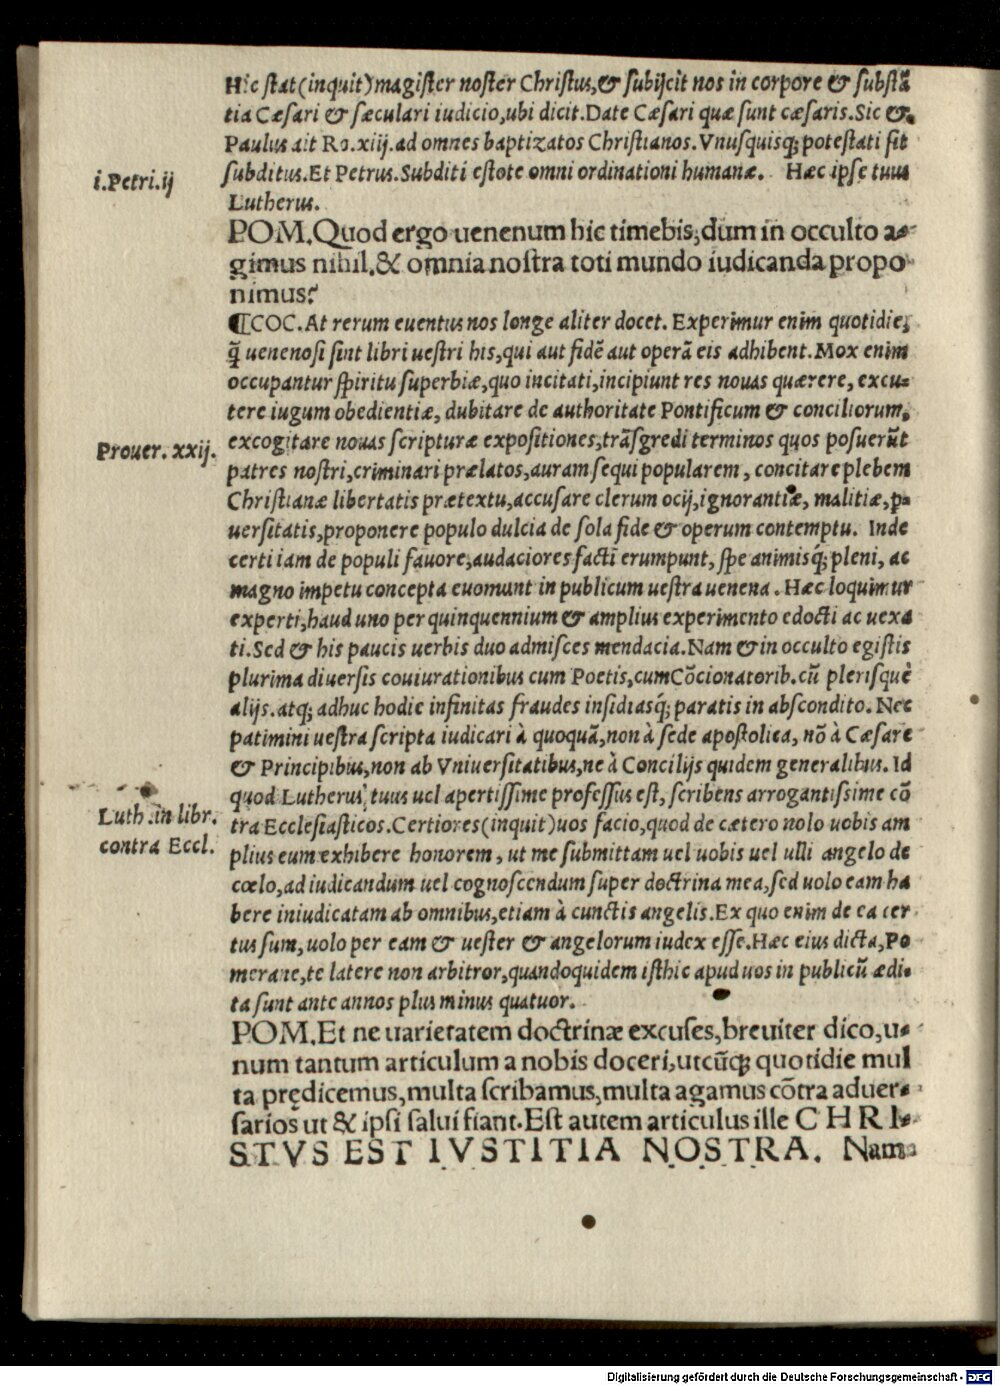 Hic stat (inquit) magister noster Christus, & subijcit nos in corpore & substā
tia Cæsari & sæculari iudicio, ubi dicit. Date Cæsari quæ sunt cæsaris. Sic &
Paulus ait Ro. xiij. ad omnes baptizatos Christianos. Vnusquisq; potestati sit
i. Petri. ij
subditus. Et Petrus. Subditi estote omni ordinationi humanæ. Hæc ipse tuus
Lutherus.
POM. Quod ergo uenenum hic timebis, dum in occulto a-
gimus nihil, & omnia nostra toti mundo iudicanda propo
nimus?
¶COC. At rerum euentus nos longe aliter docet. Experimur enim quotidie,
q̃ uenenosi sint libri uestri his, qui aut fidē aut operā eis adhibent. Mox enim
occupantur spiritu superbiæ, quo incitati, incipiunt res nouas quærere, excu-
tere iugum obedientiæ, dubitare de authoritate Pontificum & conciliorum,
Prouer. xxij.
excogitare nouas scripturæ expositiones, trāsgredi terminos quos posuerūt
patres nostri, criminari prælatos, auram sequi popularem, concitare plebem
Christianæ libertatis prætextu, accusare clerum ocij, ignorantiæ, malitiæ, p-
uersitatis, proponere populo dulcia de sola fide & operum contemptu. Inde
certi iam de populi fauore, audaciores facti erumpunt, spe animisq́; pleni, ac
magno impetu concepta euomunt in publicum uestra uenena. Hæc loquimur
experti, haud uno per quinquennium & amplius experimento edocti ac uexa
ti. Sed & his paucis uerbis duo admisces mendacia. Nam & in occulto egistis
plurima diuersis coniurationibus cum Poetis, cum Cōcionatorib. cū plerisquè
alijs. atq; adhuc hodie infinitas fraudes insidiasq́; paratis in abscondito. Nec
patimini uestra scripta iudicari à quoquā, non à sede apostolica, nō à Cæsare
& Principibus, non ab Vniuersitatibus, ne à Concilijs quidem generalibus. Id
quod Lutherus, tuus uel apertissime professus est, scribens arrogantissime cō
Luth. in libr.
contra Eccl.
tra Ecclesiasticos. Certiores (inquit) uos facio, quod de cætero nolo uobis am
plius eum exhibere honorem, ut me submittam uel uobis uel ulli angelo de
cœlo, ad iudicandum uel cognoscendum super doctrina mea, sed uolo eam ha
bere iniudicatam ab omnibus, etiam à cunctis angelis. Ex quo enim de ea cer
tus sum, uolo per eam & uester & angelorum iudex esse. Hæc eius dicta, Po
merane, te latere non arbitror, quandoquidem isthic apud uos in publicū ædi-
ta sunt ante annos plus minus quatuor.
POM. Et ne uarietatem doctrinæ excuses, breuiter dico, u-
num tantum articulum a nobis doceri, utcūq; quotidie mul
ta prędicemus, multa scribamus, multa agamus cōtra aduer-
sarios ut & ipsi salui fiant. Est autem articulus ille CHRI-
STVS EST IVSTITIA NOSTRA. Nam
Digitalisierung gefördert durch die Deutsche Forschungsgemeinschaft - DFG